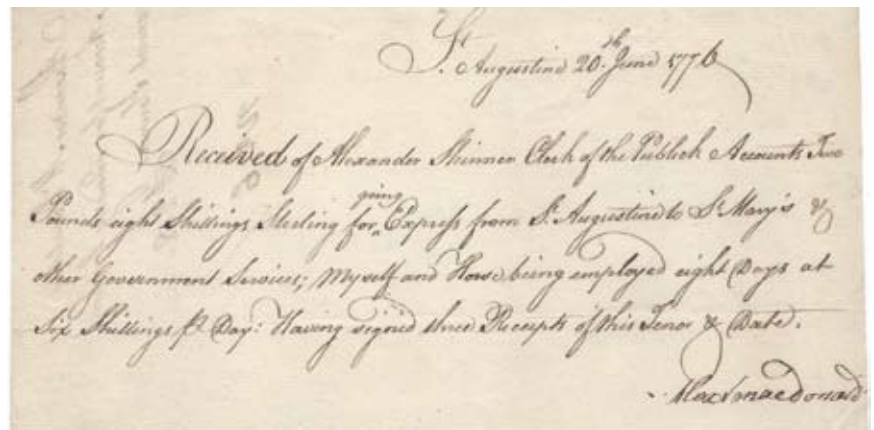 St. Augustine 20.th June 1776
Received of Alexander Skinner Clerk of the Publick Accounts Two
Pounds eight Shillings Sterling for going Express from St. Augustine to St. Mary's &
other Government Services; Myself and Horse being employed eight Days at
Six Shillings pr. Day: Having signed three Receipts of this Tenor & Date.
macdonald